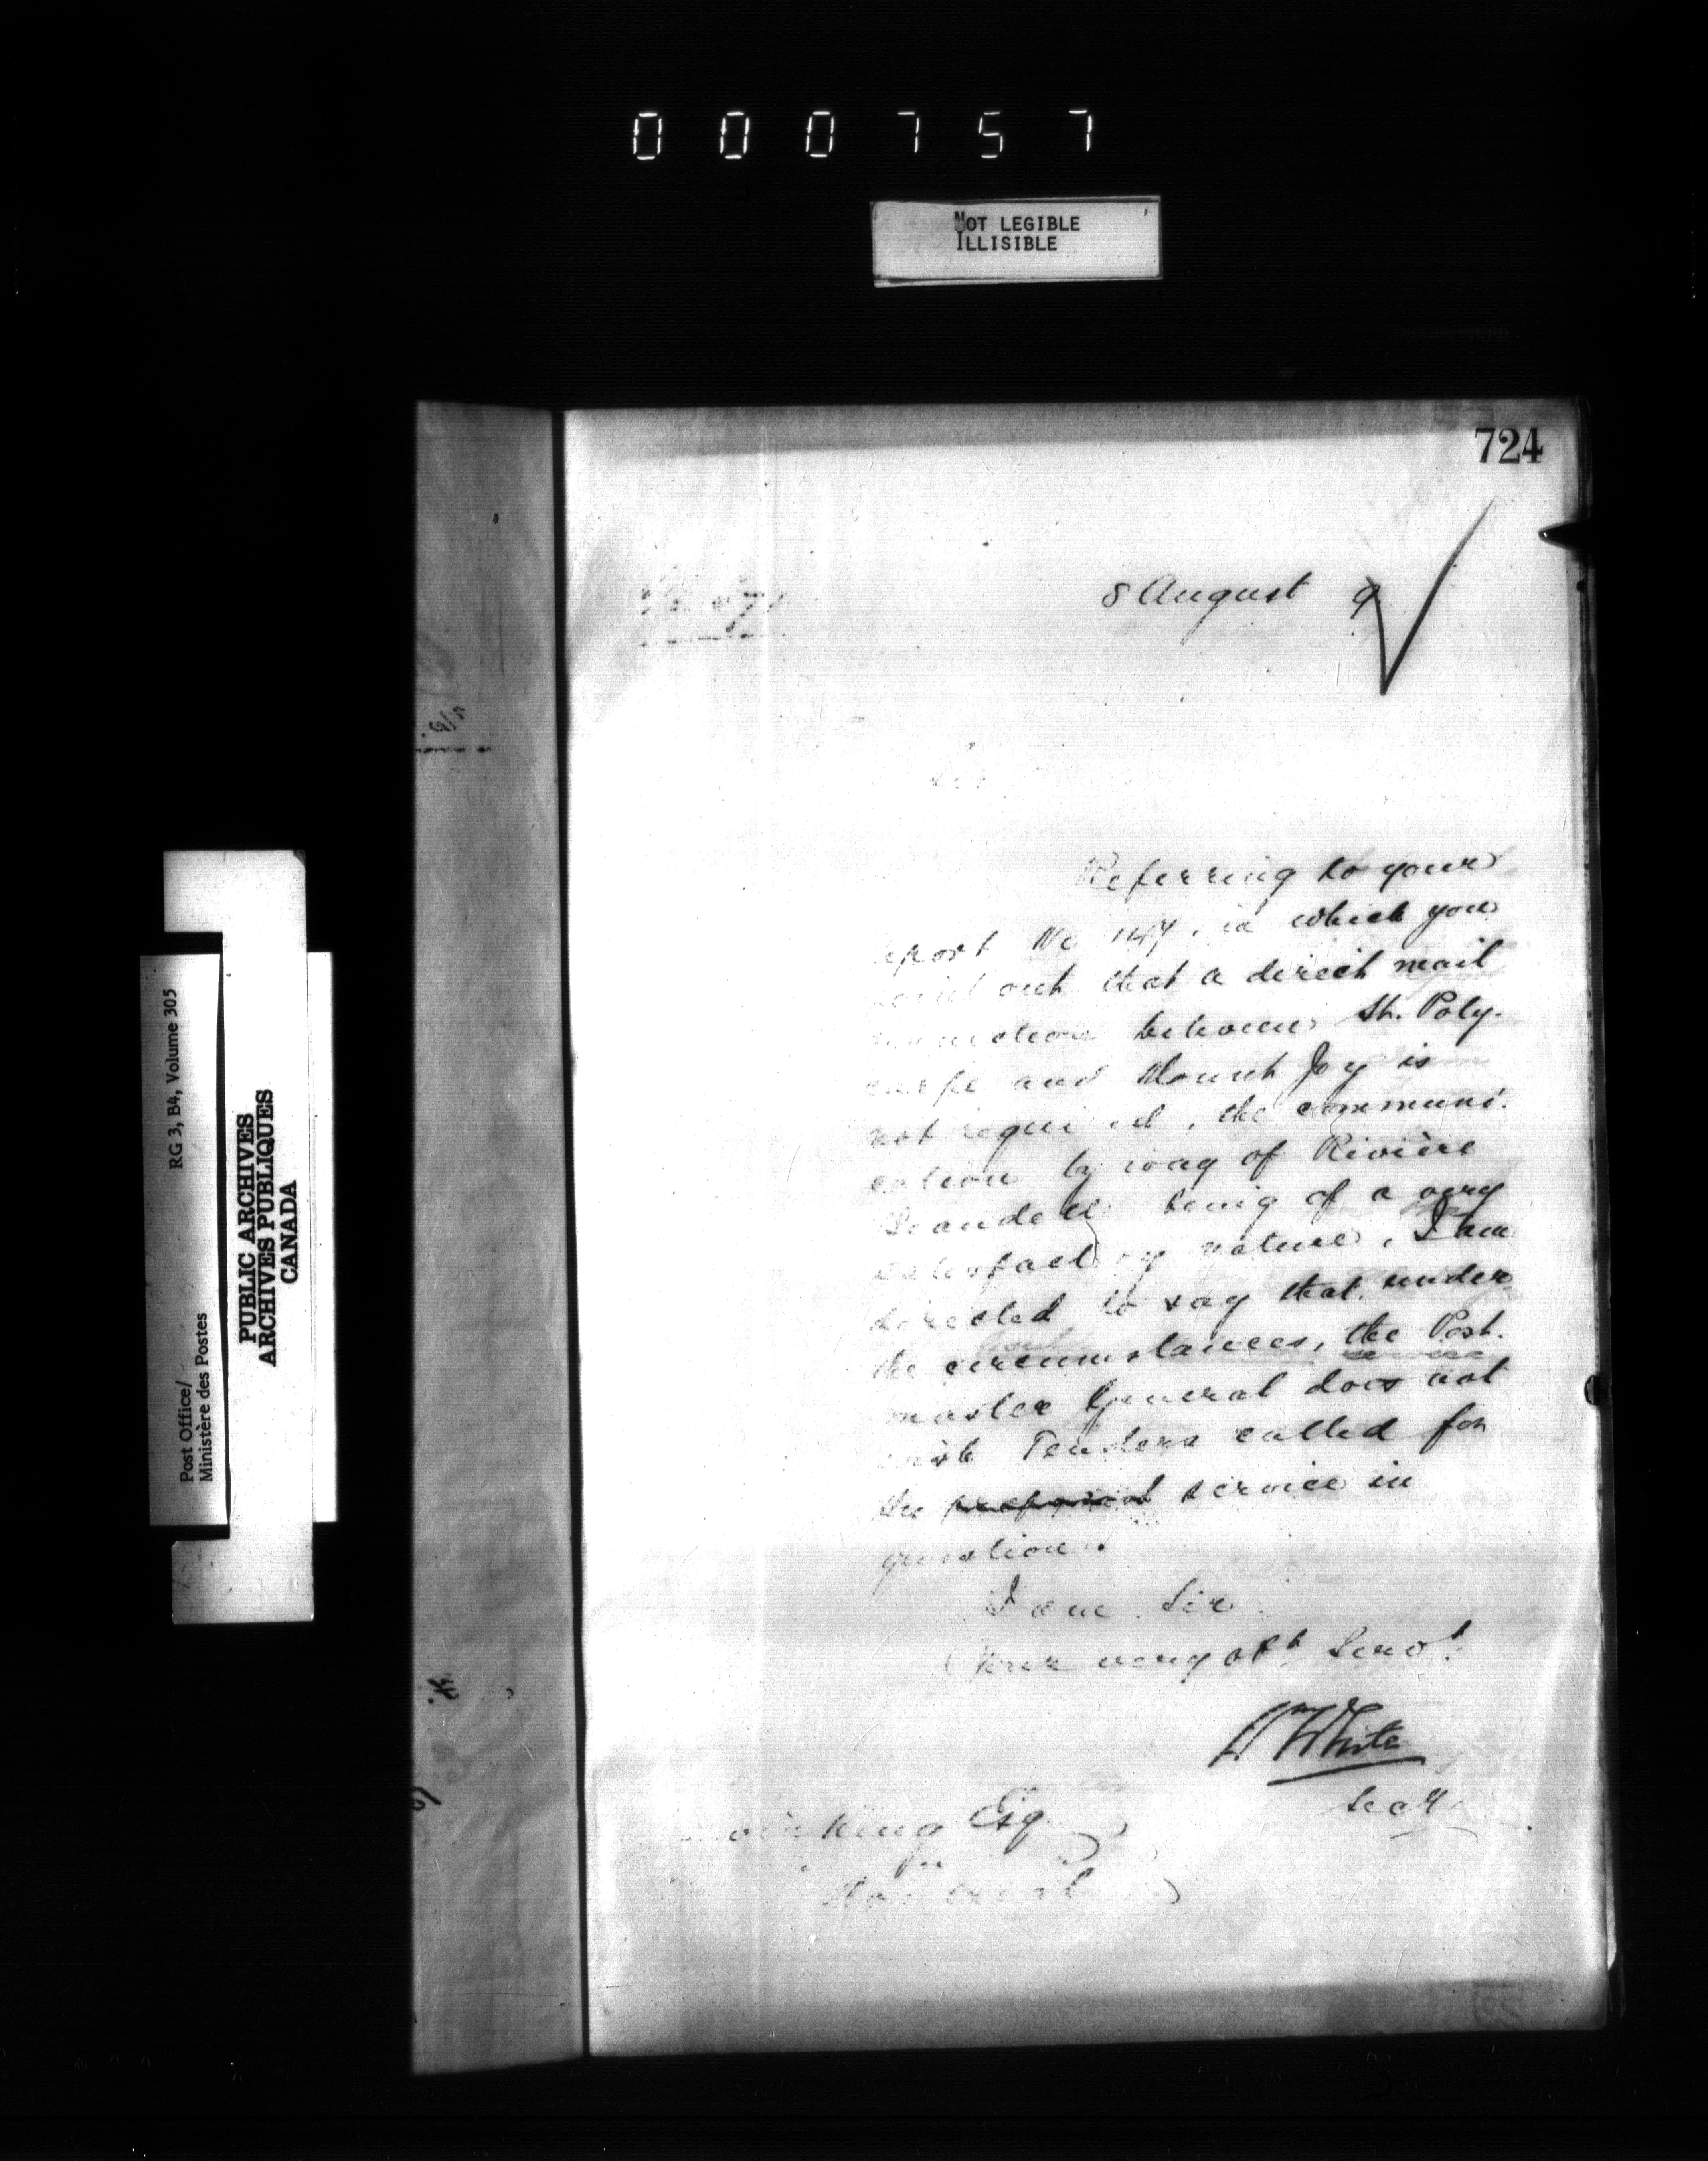 000757
NOT LEGIBLE
ILLISIBLE
724
8 August 9
Sir
Referring to your
report No 147, in which you
point out that a direct mail
between St. Poly-
carpe and Mount Joy is
not required, the communi-
cation by way of Rivière
Beaudette being of a very
satisfactory nature, I am
directed to say that, under
the circumstances, the Post-
master General does not
wish Tenders called for
the service in
question.
I am Sir
Your very obt Servt
Wm White
Secy
King Esq
Montreal
RG 3, B4, Volume 305
Post Office/
Ministère des Postes
PUBLIC ARCHIVES
ARCHIVES PUBLIQUES
CANADA